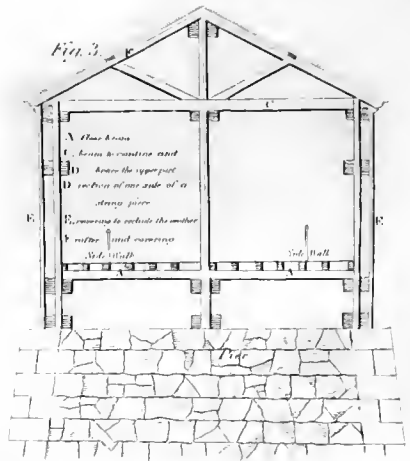 Fig. 3.
F
C
A floor beam
C. beam to confine and
brace the upper part
D section of one side of a
string piece
E. covering to exclude the weather
F rafter and covering
E
E
Side Walk
Side Walk
A
A
Pier